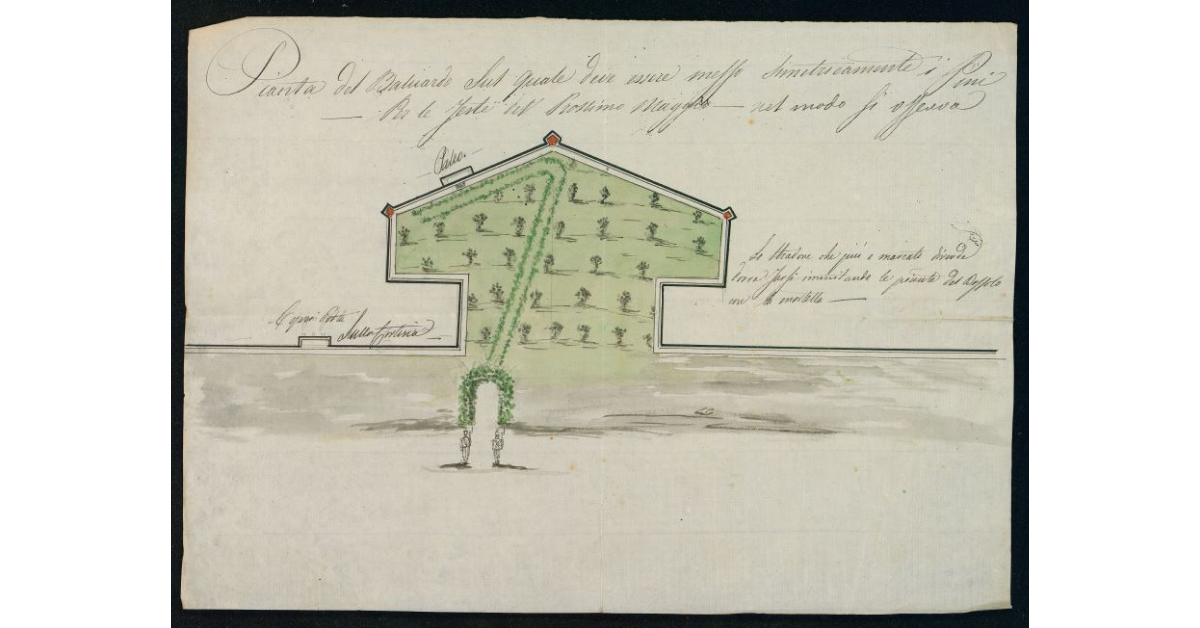 Pianta del Baluardo Sul quale deve essere messo simetricamente i Pini
Per le feste del Prossimo Maggio — nel modo si osserva
Palco.
Lo Stradone che più è marcato divide
dovrà farsi le piante del
con la mortella —
quai Posta
Sulla Cortina